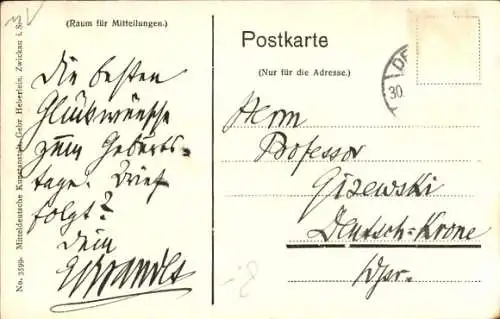 (Raum für Mitteilungen.)
Die besten
Glückwünsche
zum Geburts-
tage. Brief
folgt?
Dein
No. 3599. Mitteldeutsche Kunstanstalt, Gebr. Heberlein, Zwickau i. S.
Postkarte
(Nur für die Adresse.)
30.
Herrn
Professor
Gizewski
Deutsch-Krone
Wpr.